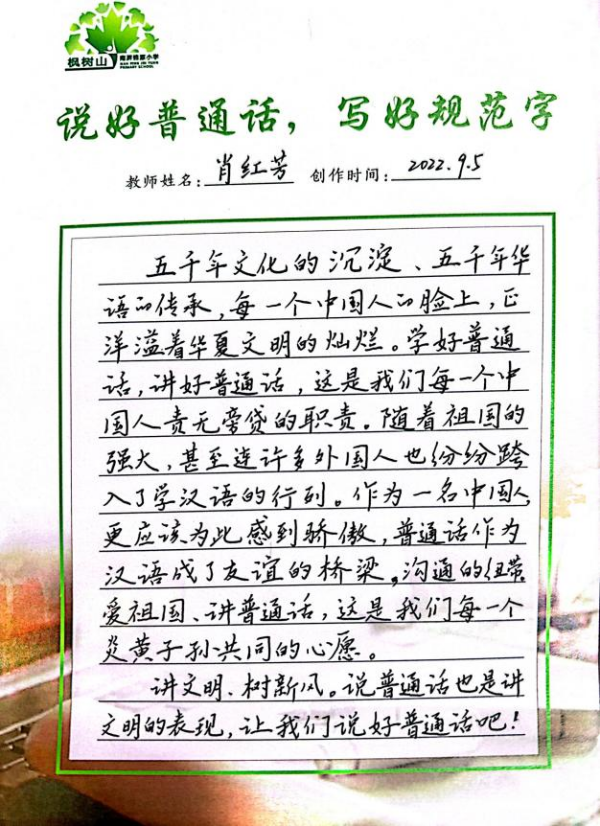 枫树山
PRIMARY SCHOOL
说好普通话，写好规范字
教师姓名：肖红芳 创作时间：2022.9.5
五千年文化的沉淀、五千年华
语的传承，每一个中国人的脸上，正
洋溢着华夏文明的灿烂。学好普通
话，讲好普通话，这是我们每一个中
国人责无旁贷的职责。随着祖国的
强大，甚至连许多外国人也纷纷跨
入了学汉语的行列。作为一名中国人，
更应该为此感到骄傲，普通话作为
汉语成了友谊的桥梁，沟通的纽带。
爱祖国、讲普通话，这是我们每一个
炎黄子孙共同的心愿。
讲文明、树新风。说普通话也是讲
文明的表现，让我们说好普通话吧！